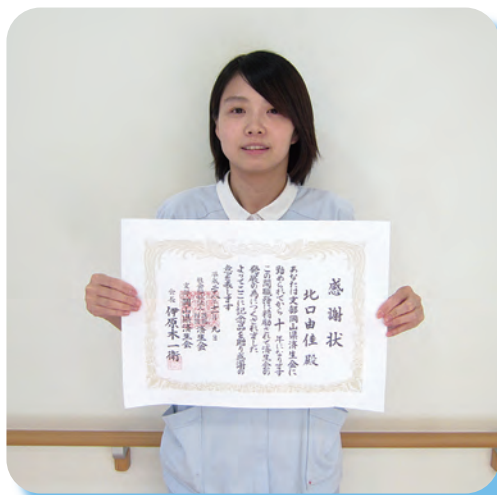 感謝状
北口由佳 殿
あなたは支部岡山県済生会に
勤められてから十年になります
この間職務に精励されて済生会の
発展の為につくされました
よってここに記念品を贈り感謝の
意を表します
社会福祉法人
済生会
支部岡山県済生会
会長 伊原木一衛